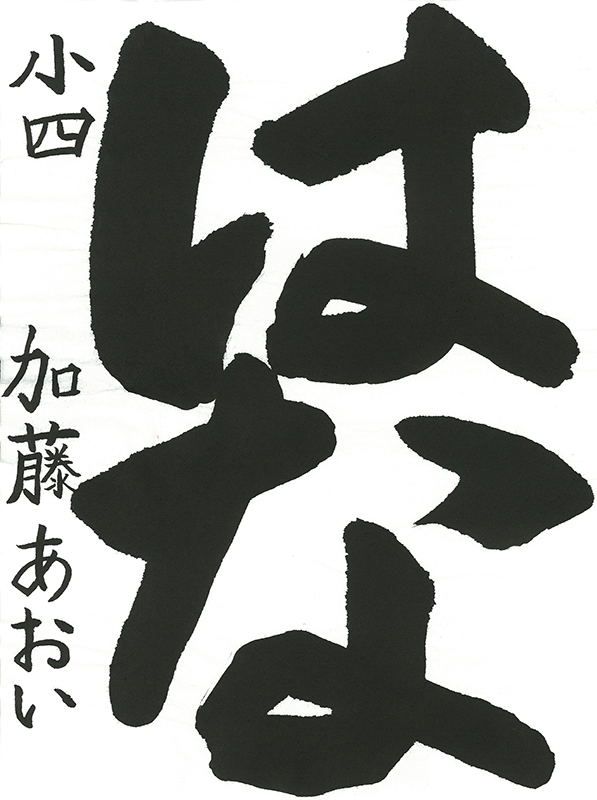 はな
小四 加藤あおい